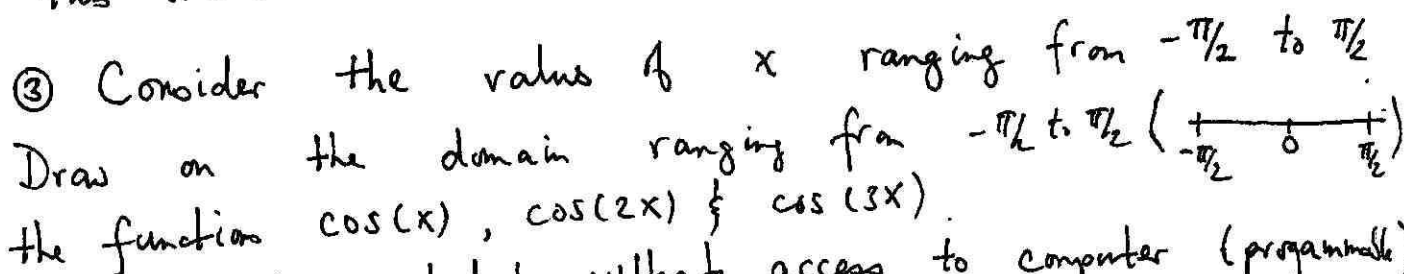 ③ Consider the values of x ranging from -π/2 to π/2.
Draw on the domain ranging from -π/2 to π/2 ( -π/2 0 π/2 )
the functions cos(x), cos(2x) & cos(3x).
without access to computer (progammable)